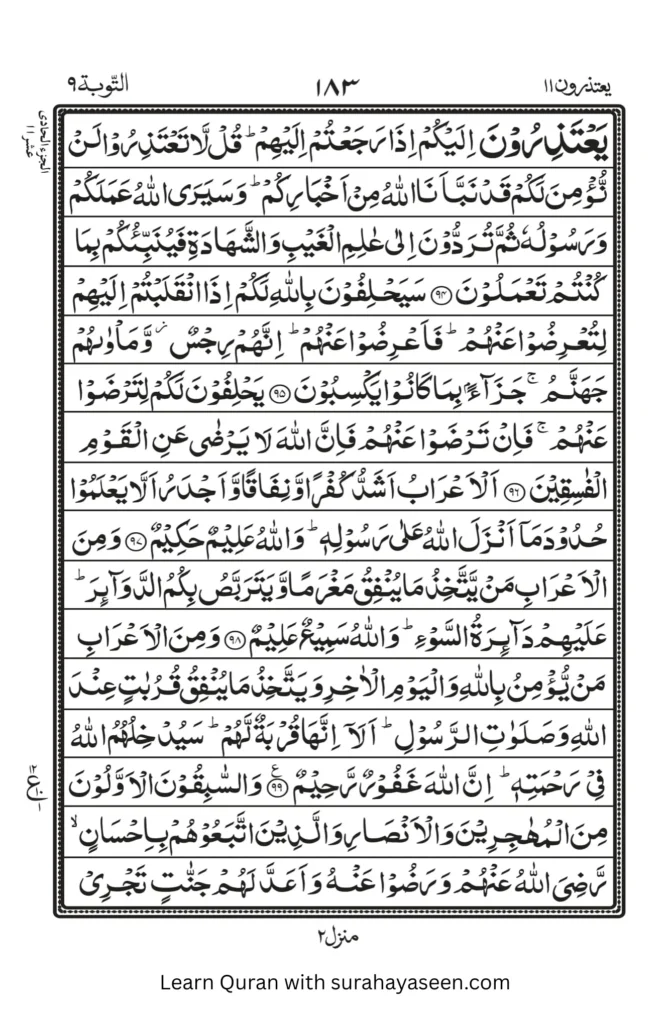 يعتذرون ١١ ١٨٣ التّوبة ٩
الجزء الحادى عشر ١١
يَعْتَذِرُوْنَ اِلَيْكُمْ اِذَا رَجَعْتُمْ اِلَيْهِمْ ؕ قُلْ لَّا تَعْتَذِرُوْا لَنْ
نُّؤْمِنَ لَكُمْ قَدْ نَبَّاَنَا اللّٰهُ مِنْ اَخْبَارِكُمْ ؕ وَسَيَرَى اللّٰهُ عَمَلَكُمْ
وَرَسُوْلُهٗ ثُمَّ تُرَدُّوْنَ اِلٰى عٰلِمِ الْغَيْبِ وَالشَّهَادَةِ فَيُنَبِّئُكُمْ بِمَا
كُنْتُمْ تَعْمَلُوْنَ ﴿۹۴﴾ سَيَحْلِفُوْنَ بِاللّٰهِ لَكُمْ اِذَا انْقَلَبْتُمْ اِلَيْهِمْ
لِتُعْرِضُوْا عَنْهُمْ ؕ فَاَعْرِضُوْا عَنْهُمْ ؕ اِنَّهُمْ رِجْسٌ ؗ وَّمَاْوٰىهُمْ
جَهَنَّمُ ۚ جَزَآءًۢ بِمَا كَانُوْا يَكْسِبُوْنَ ﴿۹۵﴾ يَحْلِفُوْنَ لَكُمْ لِتَرْضَوْا
عَنْهُمْ ۚ فَاِنْ تَرْضَوْا عَنْهُمْ فَاِنَّ اللّٰهَ لَا يَرْضٰى عَنِ الْقَوْمِ
الْفٰسِقِيْنَ ﴿۹۶﴾ اَلْاَعْرَابُ اَشَدُّ كُفْرًا وَّنِفَاقًا وَّاَجْدَرُ اَلَّا يَعْلَمُوْا
حُدُوْدَ مَاۤ اَنْزَلَ اللّٰهُ عَلٰى رَسُوْلِهٖ ؕ وَاللّٰهُ عَلِيْمٌ حَكِيْمٌ ﴿۹۷﴾ وَمِنَ
الْاَعْرَابِ مَنْ يَّتَّخِذُ مَا يُنْفِقُ مَغْرَمًا وَّيَتَرَبَّصُ بِكُمُ الدَّوَآئِرَ ؕ
عَلَيْهِمْ دَآئِرَةُ السَّوْءِ ؕ وَاللّٰهُ سَمِيْعٌ عَلِيْمٌ ﴿۹۸﴾ وَمِنَ الْاَعْرَابِ
مَنْ يُّؤْمِنُ بِاللّٰهِ وَالْيَوْمِ الْاٰخِرِ وَيَتَّخِذُ مَا يُنْفِقُ قُرُبٰتٍ عِنْدَ
اللّٰهِ وَصَلَوٰتِ الرَّسُوْلِ ؕ اَلَاۤ اِنَّهَا قُرْبَةٌ لَّهُمْ ؕ سَيُدْخِلُهُمُ اللّٰهُ
فِىْ رَحْمَتِهٖ ؕ اِنَّ اللّٰهَ غَفُوْرٌ رَّحِيْمٌ ﴿۹۹﴾ ع وَالسّٰبِقُوْنَ الْاَوَّلُوْنَ
مِنَ الْمُهٰجِرِيْنَ وَالْاَنْصَارِ وَالَّذِيْنَ اتَّبَعُوْهُمْ بِاِحْسَانٍ ۙ
رَّضِىَ اللّٰهُ عَنْهُمْ وَرَضُوْا عَنْهُ وَاَعَدَّ لَهُمْ جَنّٰتٍ تَجْرِىْ
منزل ٢
Learn Quran with surahayaseen.com